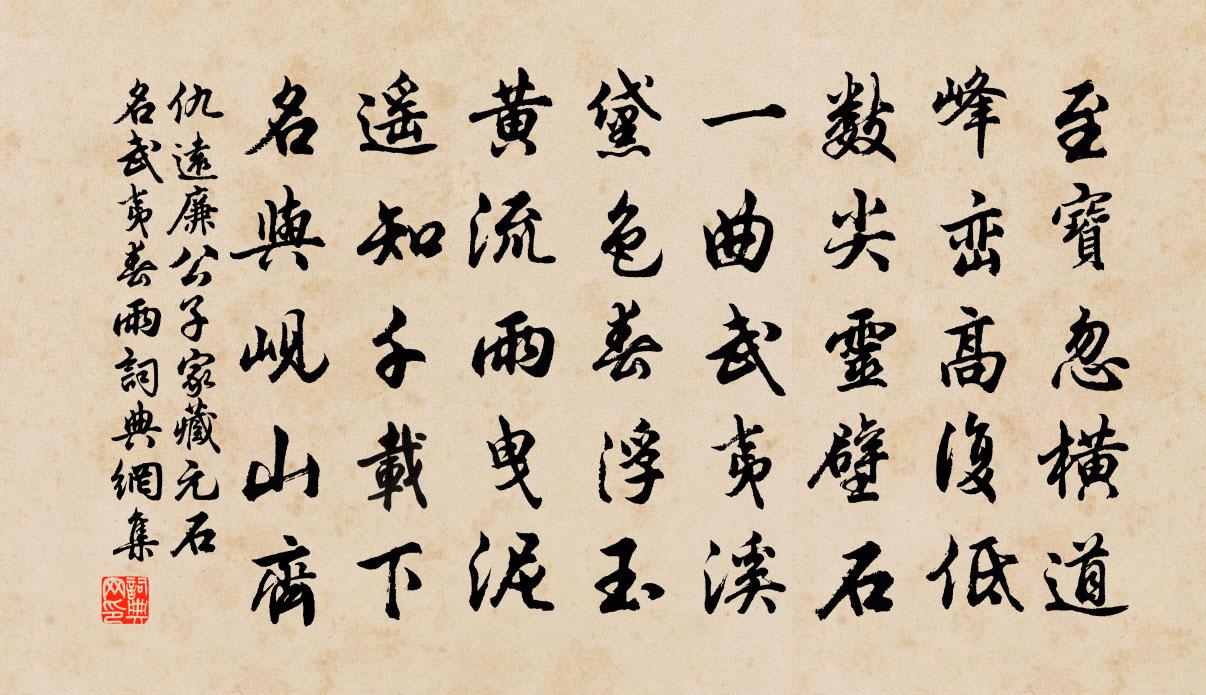 至寶忽橫道
峰巒高復低
數尖靈壁石
一曲武夷溪
黛色春浮玉
黃流雨曳泥
遥知千載下
名與峴山齊
仇遠廉公子家藏元石
名武夷春雨詞典網集
詞典网印